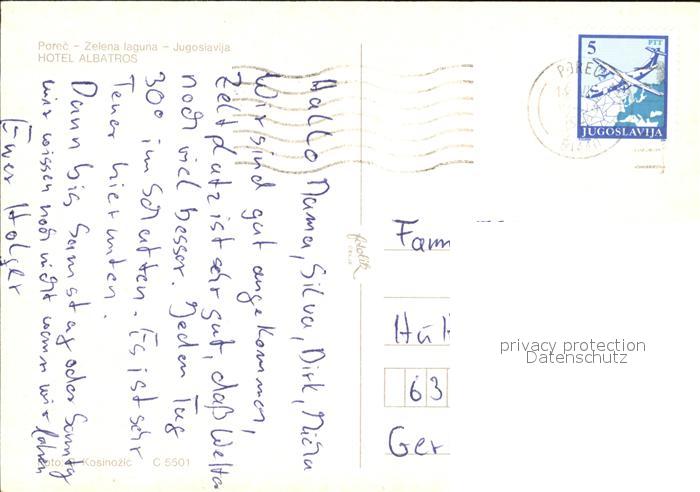 Poreč – Zelena laguna – Jugoslavija
HOTEL ALBATROS
Hallo Mama, Silva, Dirk, Micha
Wir sind gut angekommen,
Zeltplatz ist sehr gut, daß Wetter
noch viel besser. Jeden Tag
30° im Schatten. Es ist sehr
Teuer hier unten.
Dann bis Samstag oder Sonntag
wir wissen noch nicht wann wir fahren
Euer Holger
Kosinožic C 5501
5
PTT
JUGOSLAVIJA
POREČ
Fam
63
Ger
privacy protection
Datenschutz